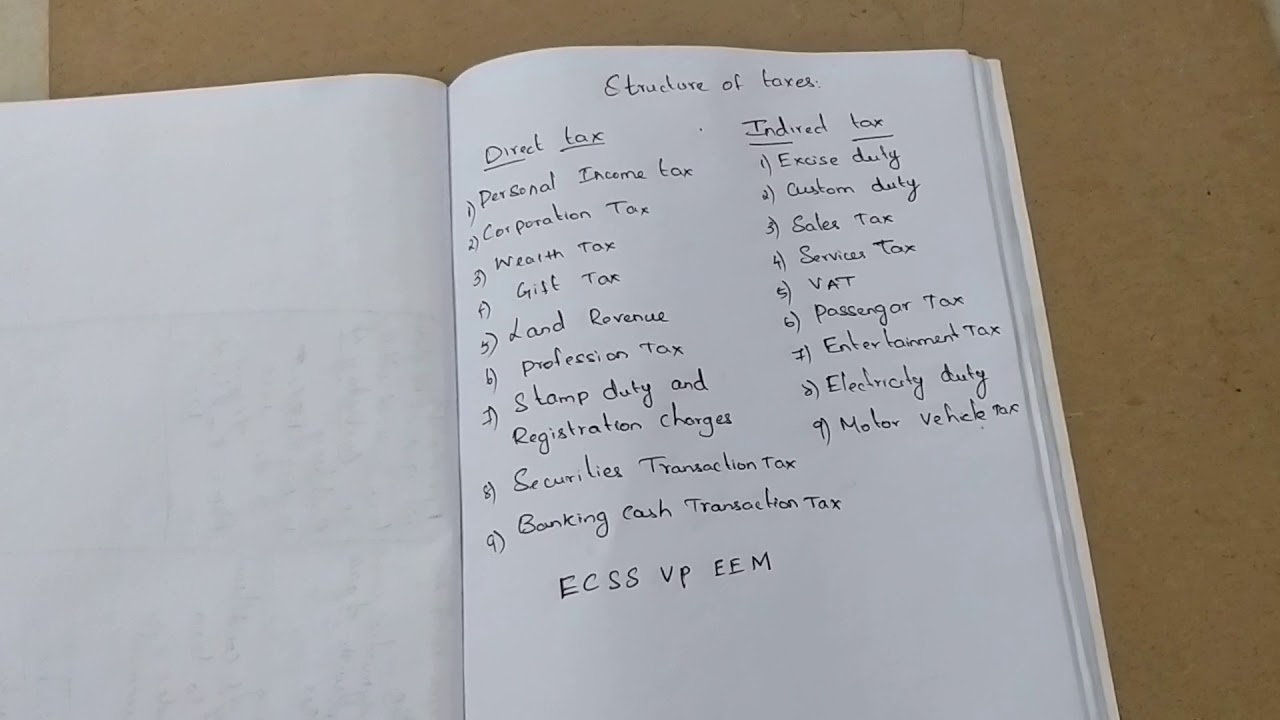 Structure of taxes:
Direct tax
1) Personal Income tax
2) Corporation Tax
3) Wealth Tax
4) Gift Tax
5) Land Revenue
6) Profession Tax
7) Stamp duty and
Registration Charges
8) Securities Transaction Tax
9) Banking Cash Transaction Tax
Indirect tax
1) Excise duty
2) Custom duty
3) Sales Tax
4) Services Tax
5) VAT
6) Passengar Tax
7) Entertainment Tax
8) Electricity duty
9) Motor Vehicle Tax
ECSS VP EEM